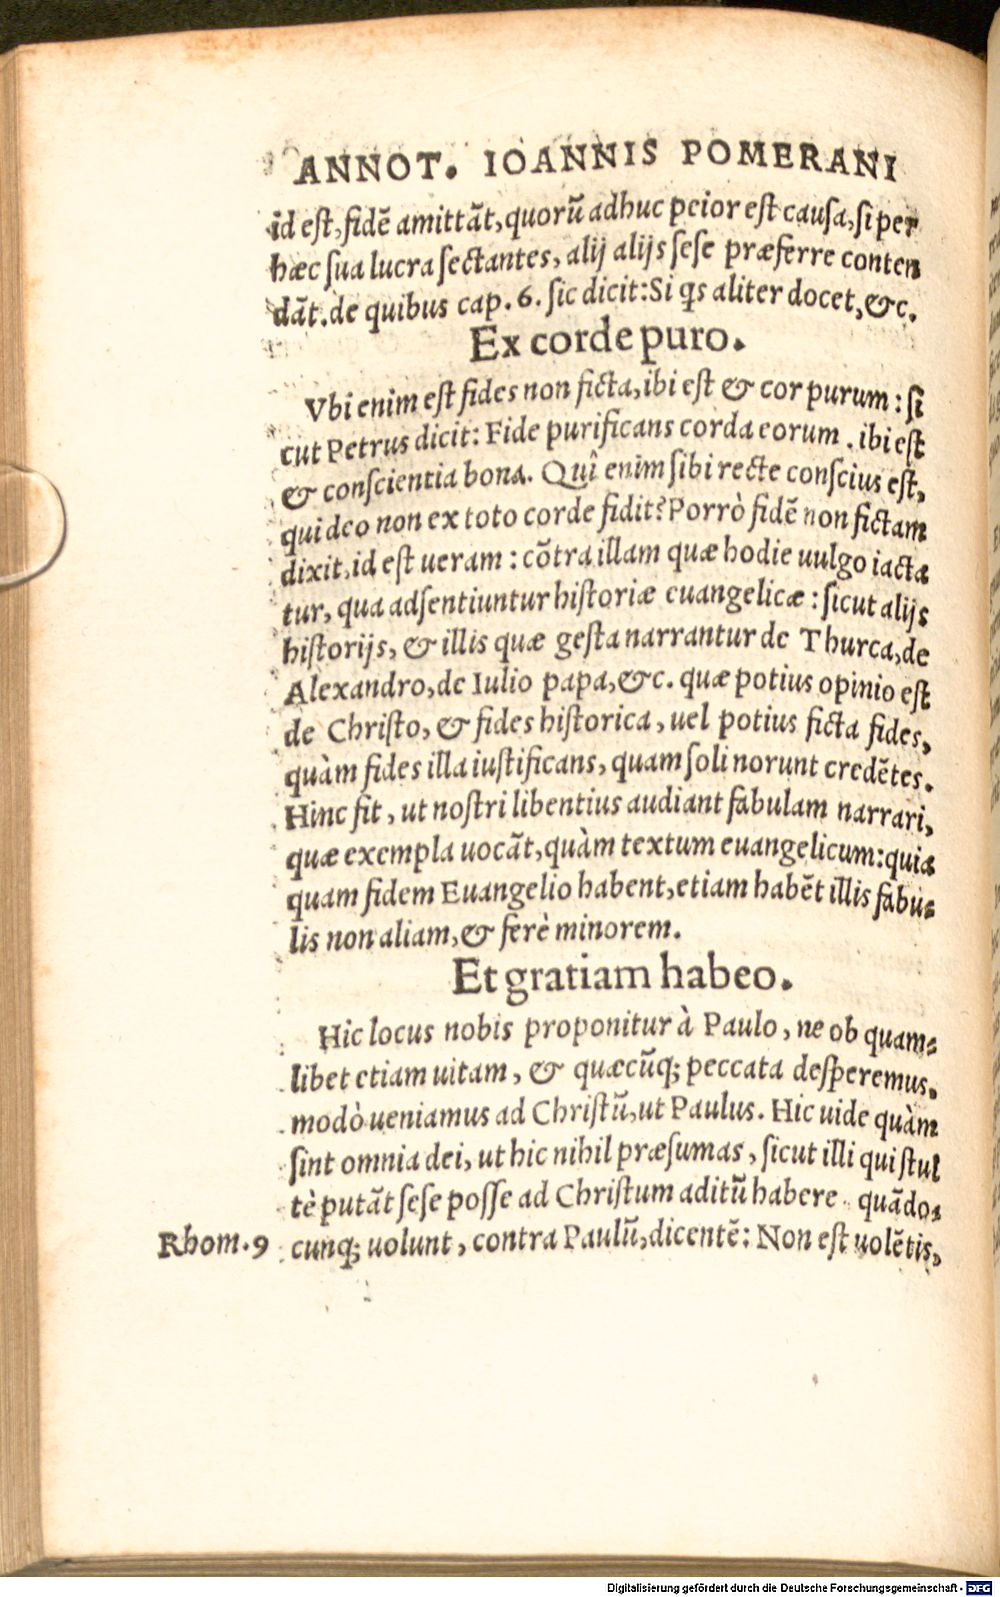 ANNOT. IOANNIS POMERANI
id est, fidē amittāt, quorū adhuc peior est causa, si per
hæc sua lucra sectantes, alij alijs sese præferre conten
dāt. de quibus cap. 6. sic dicit: Si qs aliter docet, &c.
Ex corde puro.
Vbi enim est fides non ficta, ibi est & cor purum: si
cut Petrus dicit: Fide purificans corda eorum. ibi est
& conscientia bona. Quî enim sibi recte conscius est,
qui deo non ex toto corde fidit? Porrò fidē non fictam
dixit, id est ueram: cōtra illam quæ hodie uulgo iacta
tur, qua adsentiuntur historiæ euangelicæ: sicut alijs
historijs, & illis quæ gesta narrantur de Thurca, de
Alexandro, de Iulio papa, &c. quæ potius opinio est
de Christo, & fides historica, uel potius ficta fides,
quàm fides illa iustificans, quam soli norunt credētes.
Hinc fit, ut nostri libentius audiant fabulam narrari,
quæ exempla uocāt, quàm textum euangelicum: quia
quam fidem Euangelio habent, etiam habēt illis fabu-
lis non aliam, & ferè minorem.
Et gratiam habeo.
Hic locus nobis proponitur à Paulo, ne ob quam-
libet etiam uitam, & quæcūq; peccata desperemus,
modò ueniamus ad Christū, ut Paulus. Hic uide quàm
sint omnia dei, ut hic nihil præsumas, sicut illi qui stul
tè putāt sese posse ad Christum aditū habere quādo-
Rhom. 9 cunq; uolunt, contra Paulū, dicentē: Non est uolētis,
Digitalisierung gefördert durch die Deutsche Forschungsgemeinschaft - DFG